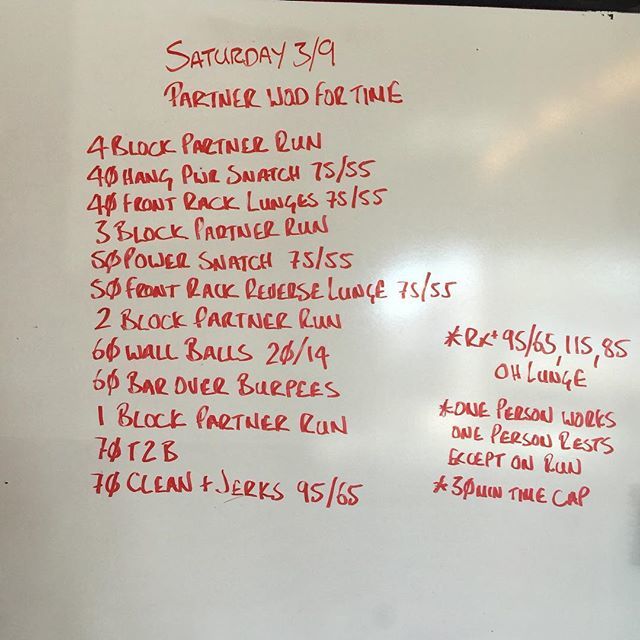 SATURDAY 3/9
PARTNER WOD FOR TIME
4 BLOCK PARTNER RUN
40 HANG PWR SNATCH 75/55
40 FRONT RACK LUNGES 75/55
3 BLOCK PARTNER RUN
50 POWER SNATCH 75/55
50 FRONT RACK REVERSE LUNGE 75/55
2 BLOCK PARTNER RUN
60 WALL BALLS 20/14
60 BAR OVER BURPEES
1 BLOCK PARTNER RUN
70 T2B
70 CLEAN + JERKS 95/65
*RX+ 95/65, 115, 85
OH LUNGE
*ONE PERSON WORKS
ONE PERSON RESTS
EXCEPT ON RUN
*30 MIN TIME CAP